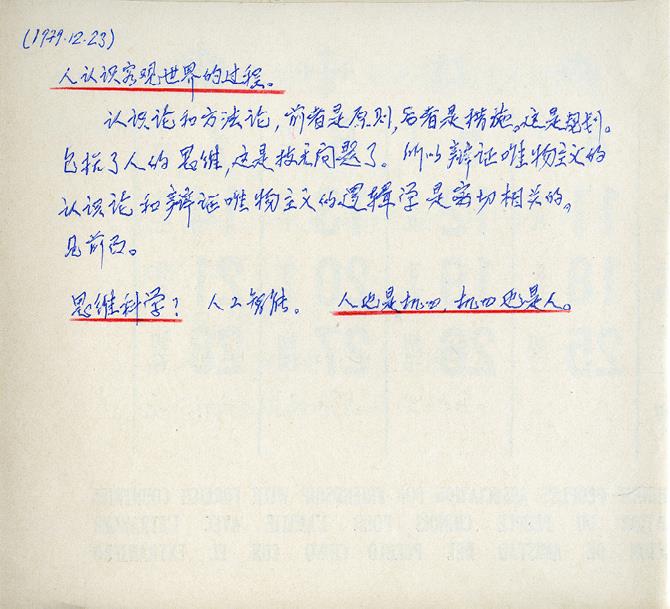 (1979.12.23)
人认识客观世界的过程。
认识论和方法论，前者是原则，后者是措施。这是规划。
包括了人的思维，这是按无问题了。所以辩证唯物主义的
认识论和辩证唯物主义的逻辑学是密切相关的。
见前面。
思维科学？ 人工智能。 人也是机四，机四也是人。